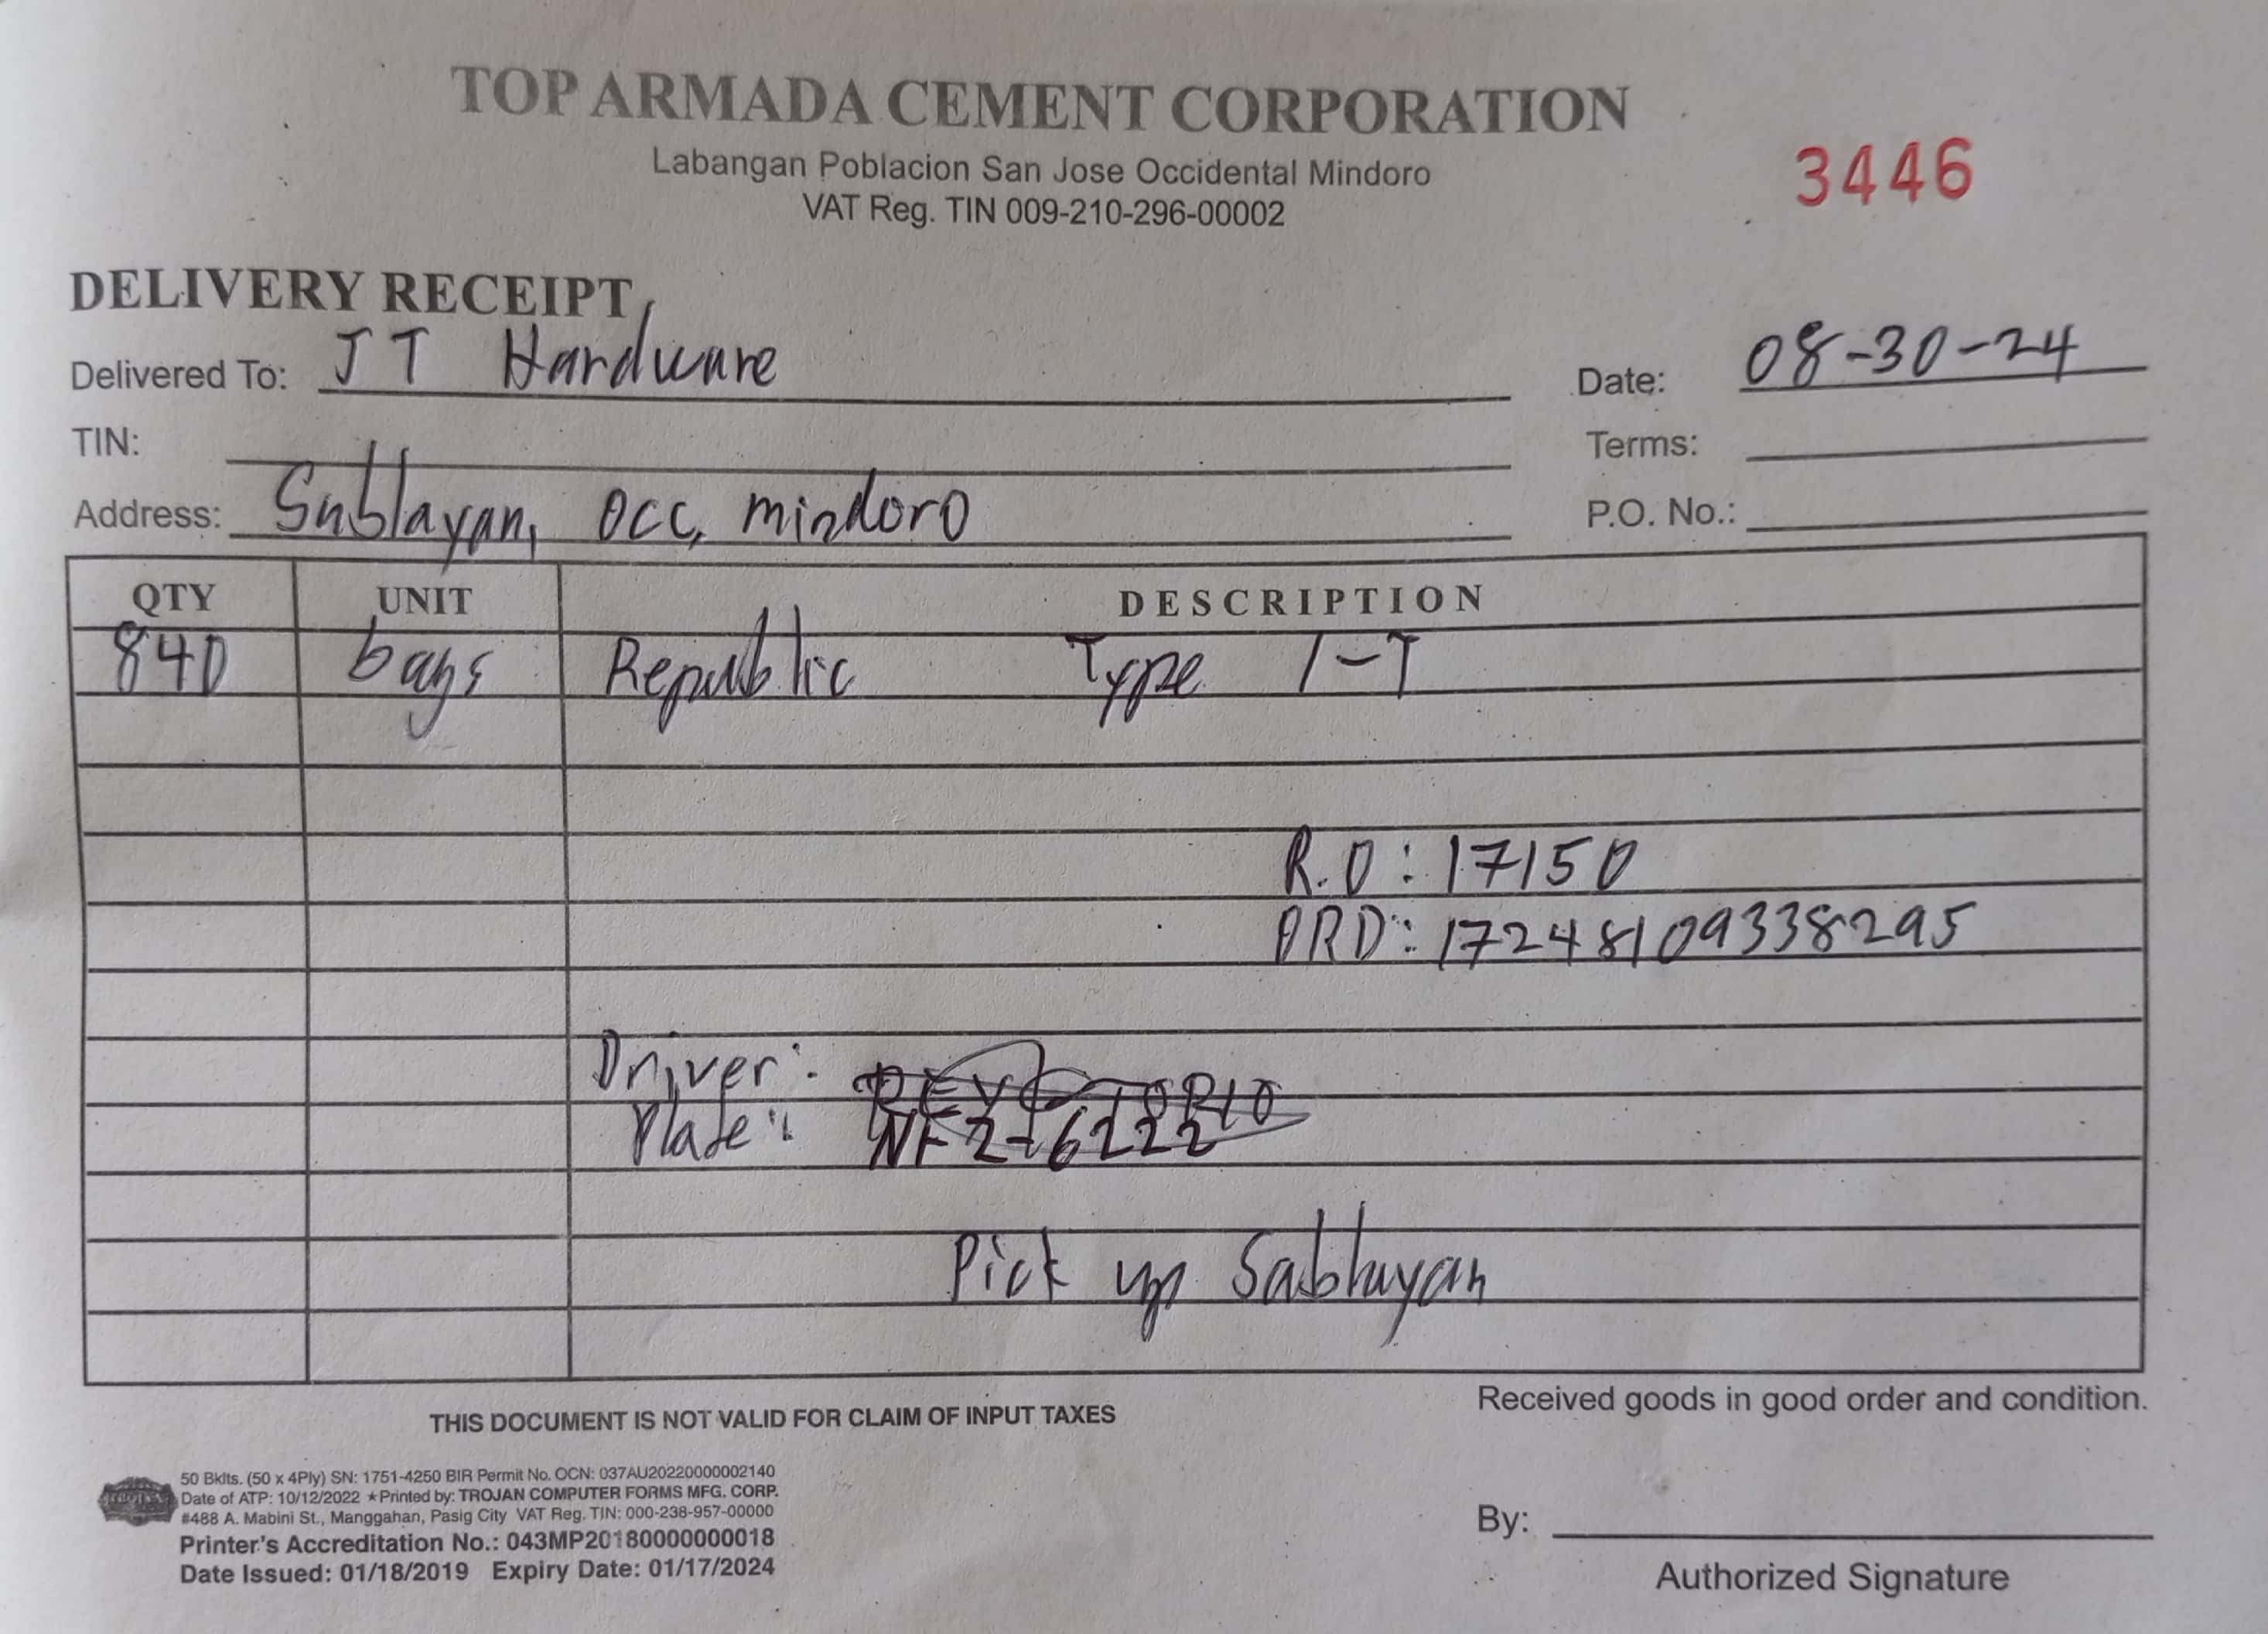 TOP ARMADA CEMENT CORPORATION
Labangan Poblacion San Jose Occidental Mindoro
VAT Reg. TIN 009-210-296-00002
3446
DELIVERY RECEIPT
Delivered To: JT Hardware
Date: 08-30-24
TIN:
Terms:
Address: Sablayan, Occ, mindoro
P.O. No.:
QTY UNIT DESCRIPTION
840 bags Republic Type 1-T
R.O: 17150
ORD: 1724810933 8295
Driver:
Plate: 6222
Pick up Sablayan
THIS DOCUMENT IS NOT VALID FOR CLAIM OF INPUT TAXES
Received goods in good order and condition.
50 Bklts. (50 x 4Ply) SN: 1751-4250 BIR Permit No. OCN: 037AU20220000002140
Date of ATP: 10/12/2022 ★Printed by: TROJAN COMPUTER FORMS MFG. CORP.
#488 A. Mabini St., Manggahan, Pasig City VAT Reg. TIN: 000-238-957-00000
Printer's Accreditation No.: 043MP20180000000018
Date Issued: 01/18/2019 Expiry Date: 01/17/2024
By:
Authorized Signature